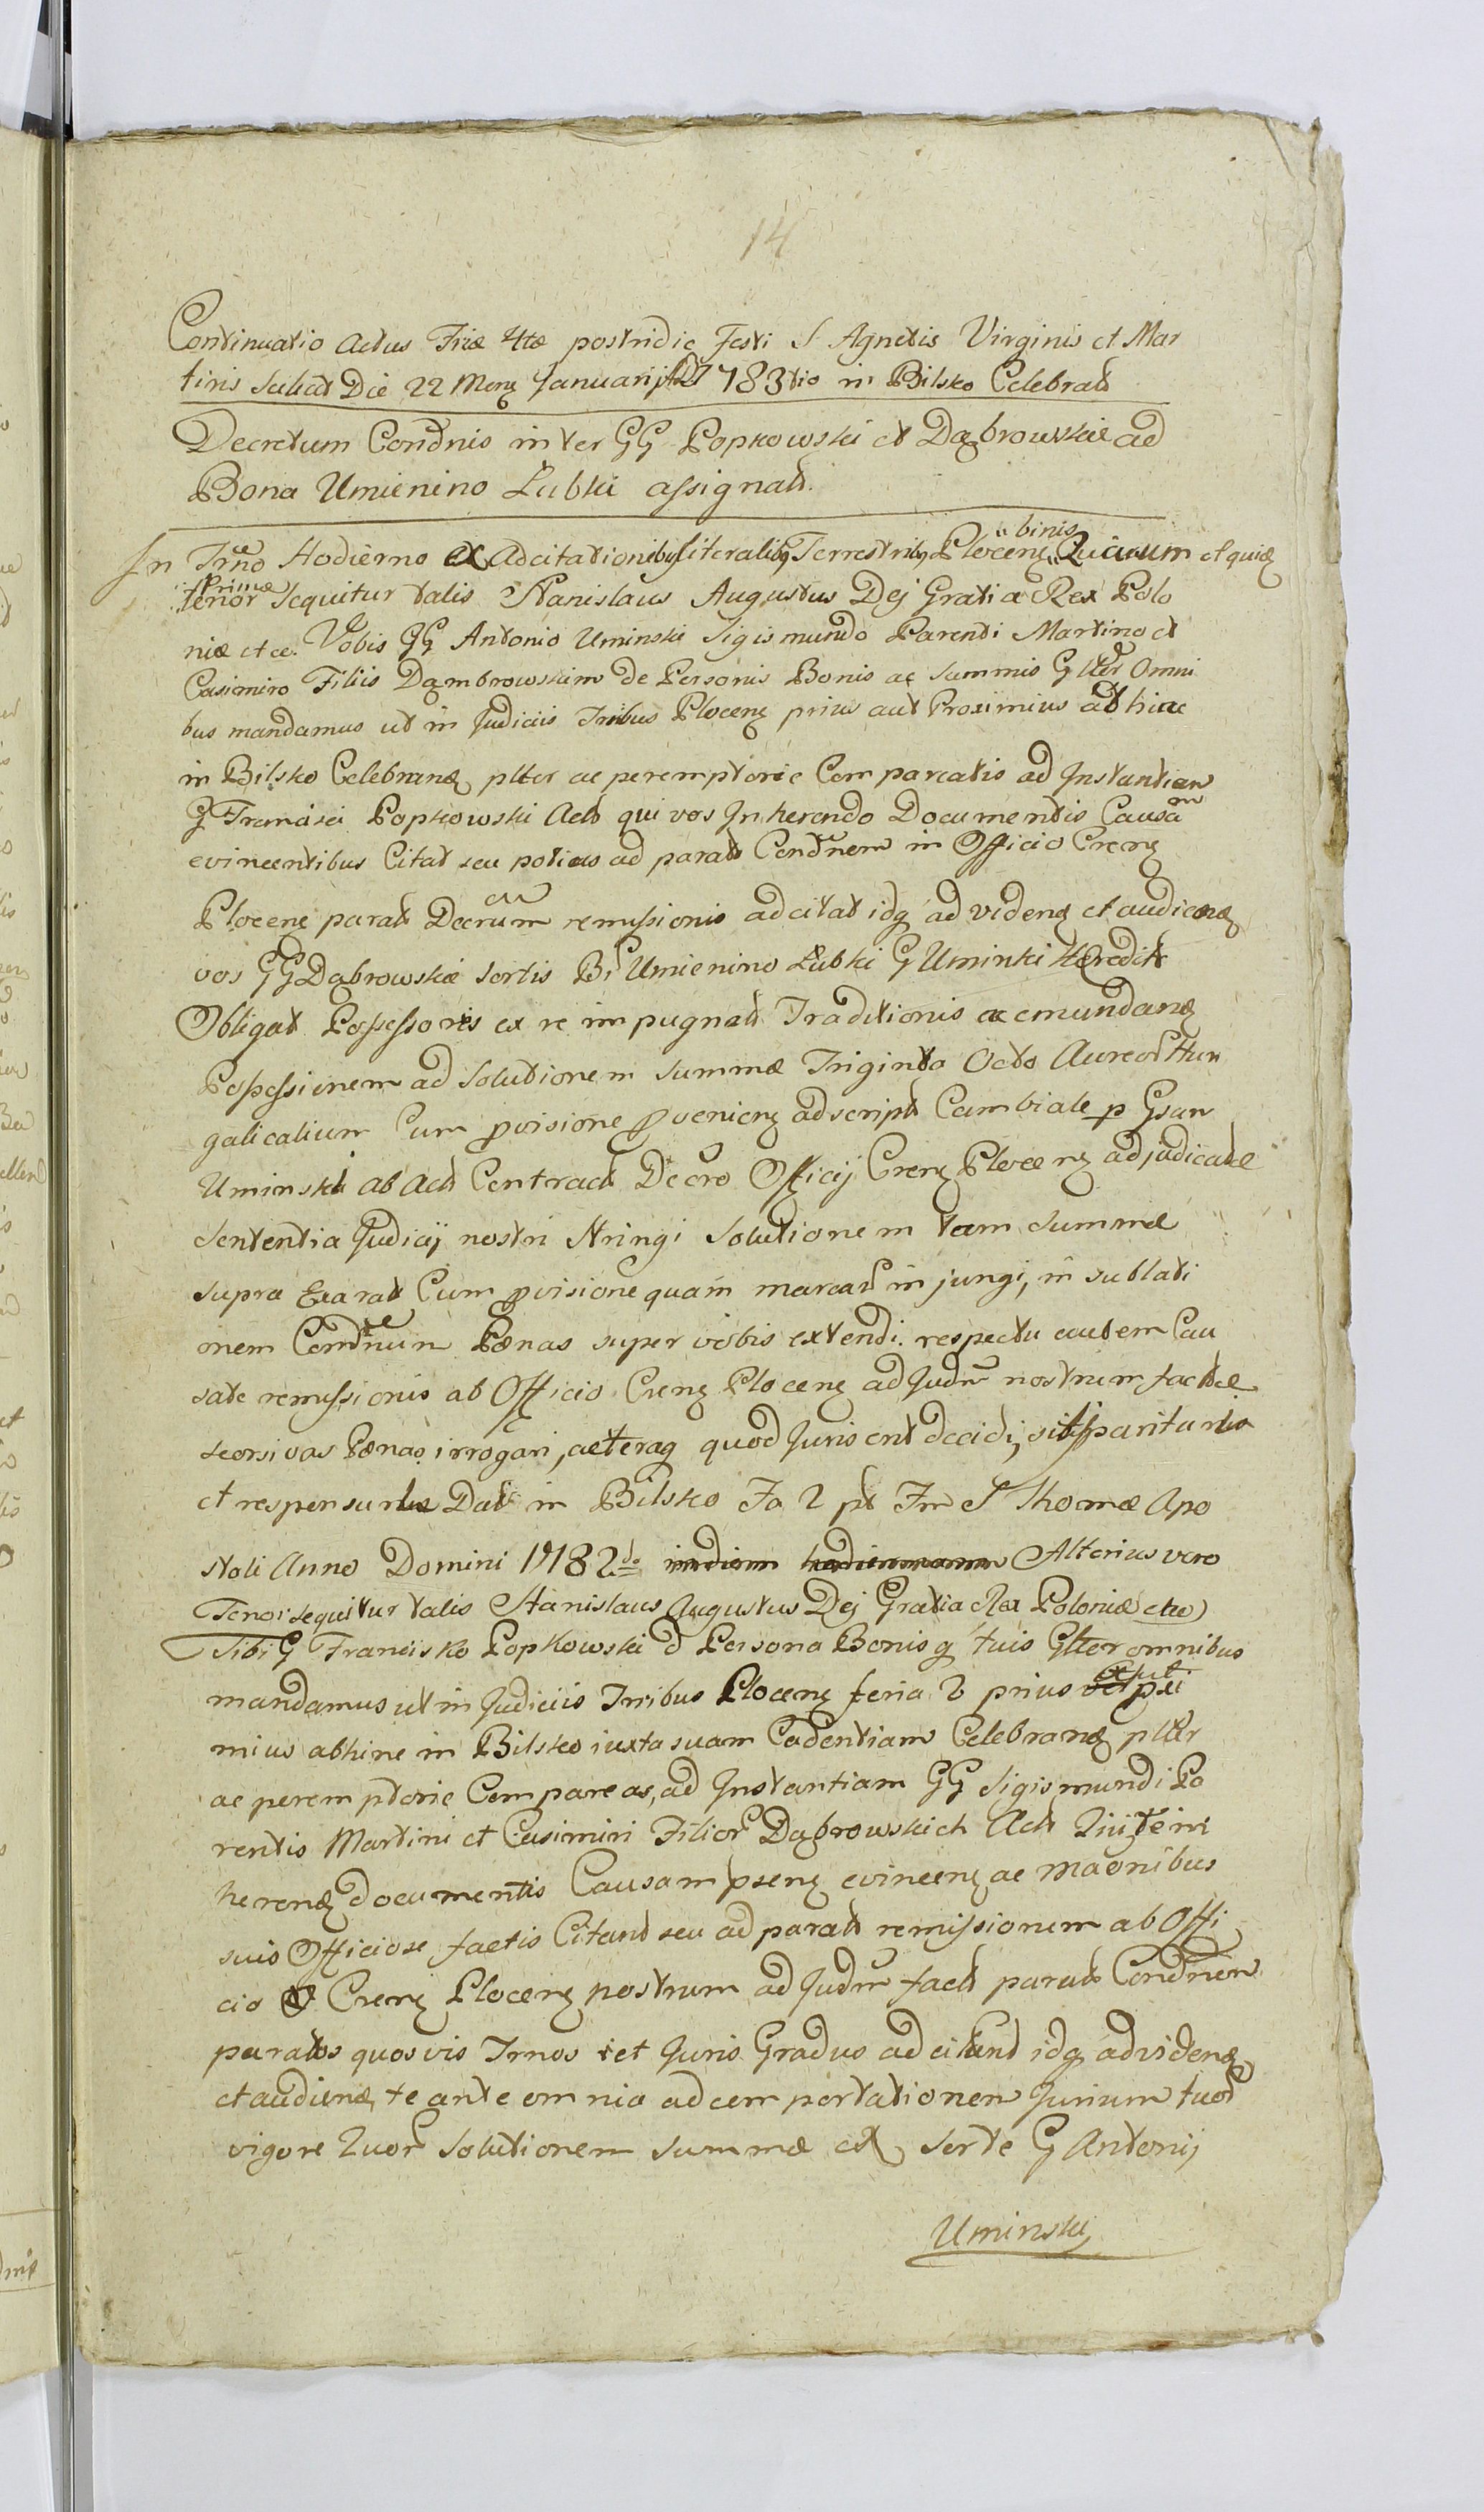 14
Continuatio Actus Friæ 4tæ postridie Festi S Agnetis Virginis et Mar
tiris Scilicet Die 22 Mens Januarij AD 1783tio in Bilsko Celebrat
Decretum Condnis inter GG Popkowski et Dąbrowskie ad
Bona Umienino Łubki assignat.
In Trno Hodierno ex Adcitationibus literalibus Terrestribus Plocens binis Quarum et quidem
Primæ tenor Sequitur talis Stanislaus Augustus Dej Gratia Rex Polo
niæ etce. Vobis GG Antonio Uminski Sigismundo Parenti Martino et
Casimiro Filiis Dąmbrowskim de Personis Bonis ac Summis Glter Omni
bus mandamus ut in Judiciis Trribus Plocens prius aut Proximius ab hinc
in Bilsko Celebrans plter ac peremptorie Compareatis ad Instantiam
G Francisci Popkowski Acts qui vos Inherendo Documentis Causam
evincentibus Citat seu potius ad parats Condnem in Officio Crens
Plocens parats Decrum remissionis adcitat idq ad videns et audiens
vos GG Dąbrowskie Sortis Br Umienino Łubki G Uminski Heredits
Obligat Possessores ex re impugnats Traditionis ac emundans
Possessionem ad Solutionem Summæ Triginta Octo Aureor Hun
galicalium Cum provisione proveniens adscripts Cambiale p Gsum
Uminski ab Acts Contracts Decro Officij Crens Plocens adjudicatæ
Sententia Judicij nostri Stringi Solutionem tam Summæ
supra Exarat Cum provisione quam marcar injungi, in sublati
onem Condnum Pænas super vobis extendi. respectu autem Cau
satæ remissionis ab Officio Crens Plocens ad Judm nostrum factæ
seorsivas Pænas irrogari, cæteraq quod Juris erit decidi, sitis parituri
et responsuri Dat in Bilsko Fa 2 pt Fm S Thomæ Apo
stoli Anno Domini 1782do Alterius vero
Tenor sequitur talis Stanislaus Augustus Dej Gratia Rex Poloniæ etce)
Tibi G Francisko Popkowski d Persona Bonisq tuis Glter omnibus
mandamus ut in Judiciis Trribus Plocens feria 2 prius aut proxi
mius abhinc in Bilsko iuxta suam Cadentiam Celebrans plter
ac peremptorie Compareas, ad Instantiam GG Sigismundi Pa
rentis Martini et Casimiri Filior Dąbrowskich Acts Qui te in
herens documentis Causam psens evincens ac maonibus
suis Officiose factis Citant seu ad parats remissionem ab Offi
cio Crens Plocens nostrum ad Judm facts parats Condnem
paratos quosvis Trnos et Juris Gradus adcitant idq ad videns
et audiens, te ante omnia ad comportationem Jurium tuor
vigore Quor Solutionem Summæ ex Sorte G Antonij
Uminski